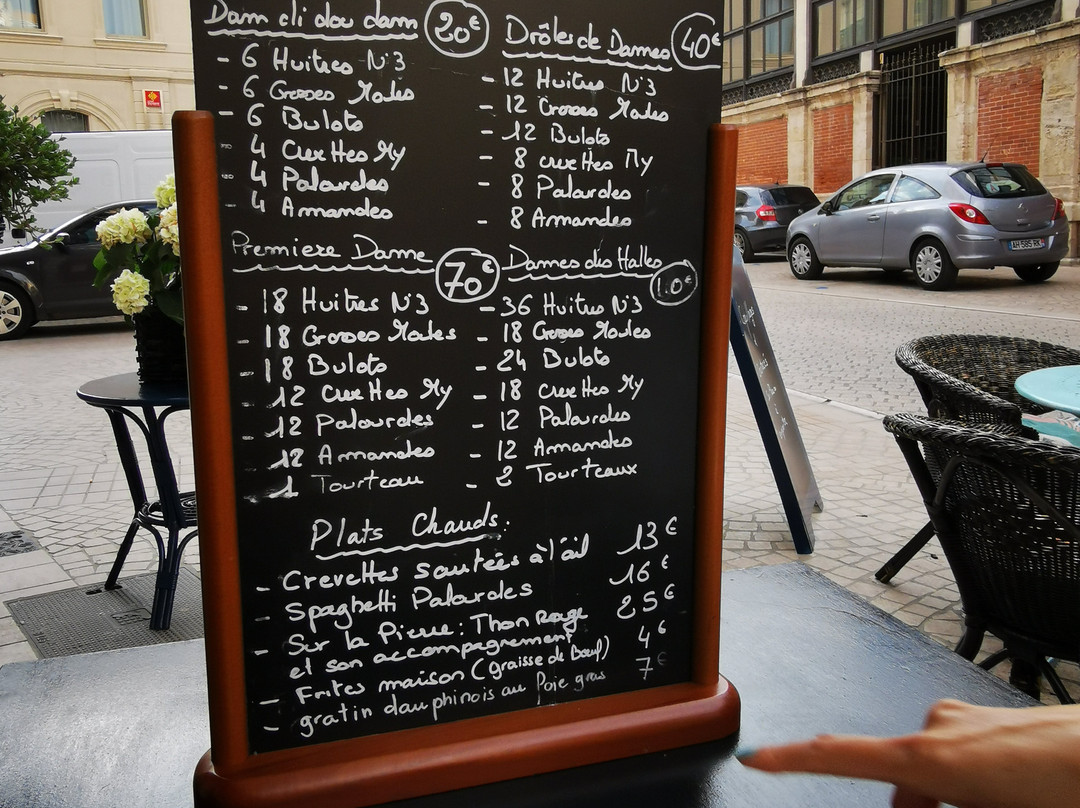 Dam di dou dam 20€
- 6 Huitres N°3
- 6 Grosses Moules
- 6 Bulots
- 4 Crevettes My
- 4 Palourdes
- 4 Amandes
Drôles de Dames 40€
- 12 Huitres N°3
- 12 Grosses Moules
- 12 Bulots
- 8 crevettes My
- 8 Palourdes
- 8 Amandes
Premiere Dame 70€
- 18 Huitres N°3
- 18 Grosses Moules
- 18 Bulots
- 12 Crevettes My
- 12 Palourdes
- 12 Amandes
- 1 Tourteau
Dames des Halles
- 36 Huitres N°3
- 18 Grosses Moules
- 24 Bulots
- 18 Crevettes My
- 12 Palourdes
- 12 Amandes
- 2 Tourteaux
Plats Chauds:
- Crevettes sautées à l'ail 13€
- Spaghetti Palourdes 16€
- Sur la Pierre: Thon Rouge 25€
et son accompagnement
- Frites maison (graisse de Bœuf) 4€
- gratin dauphinois au Foie gras 7€